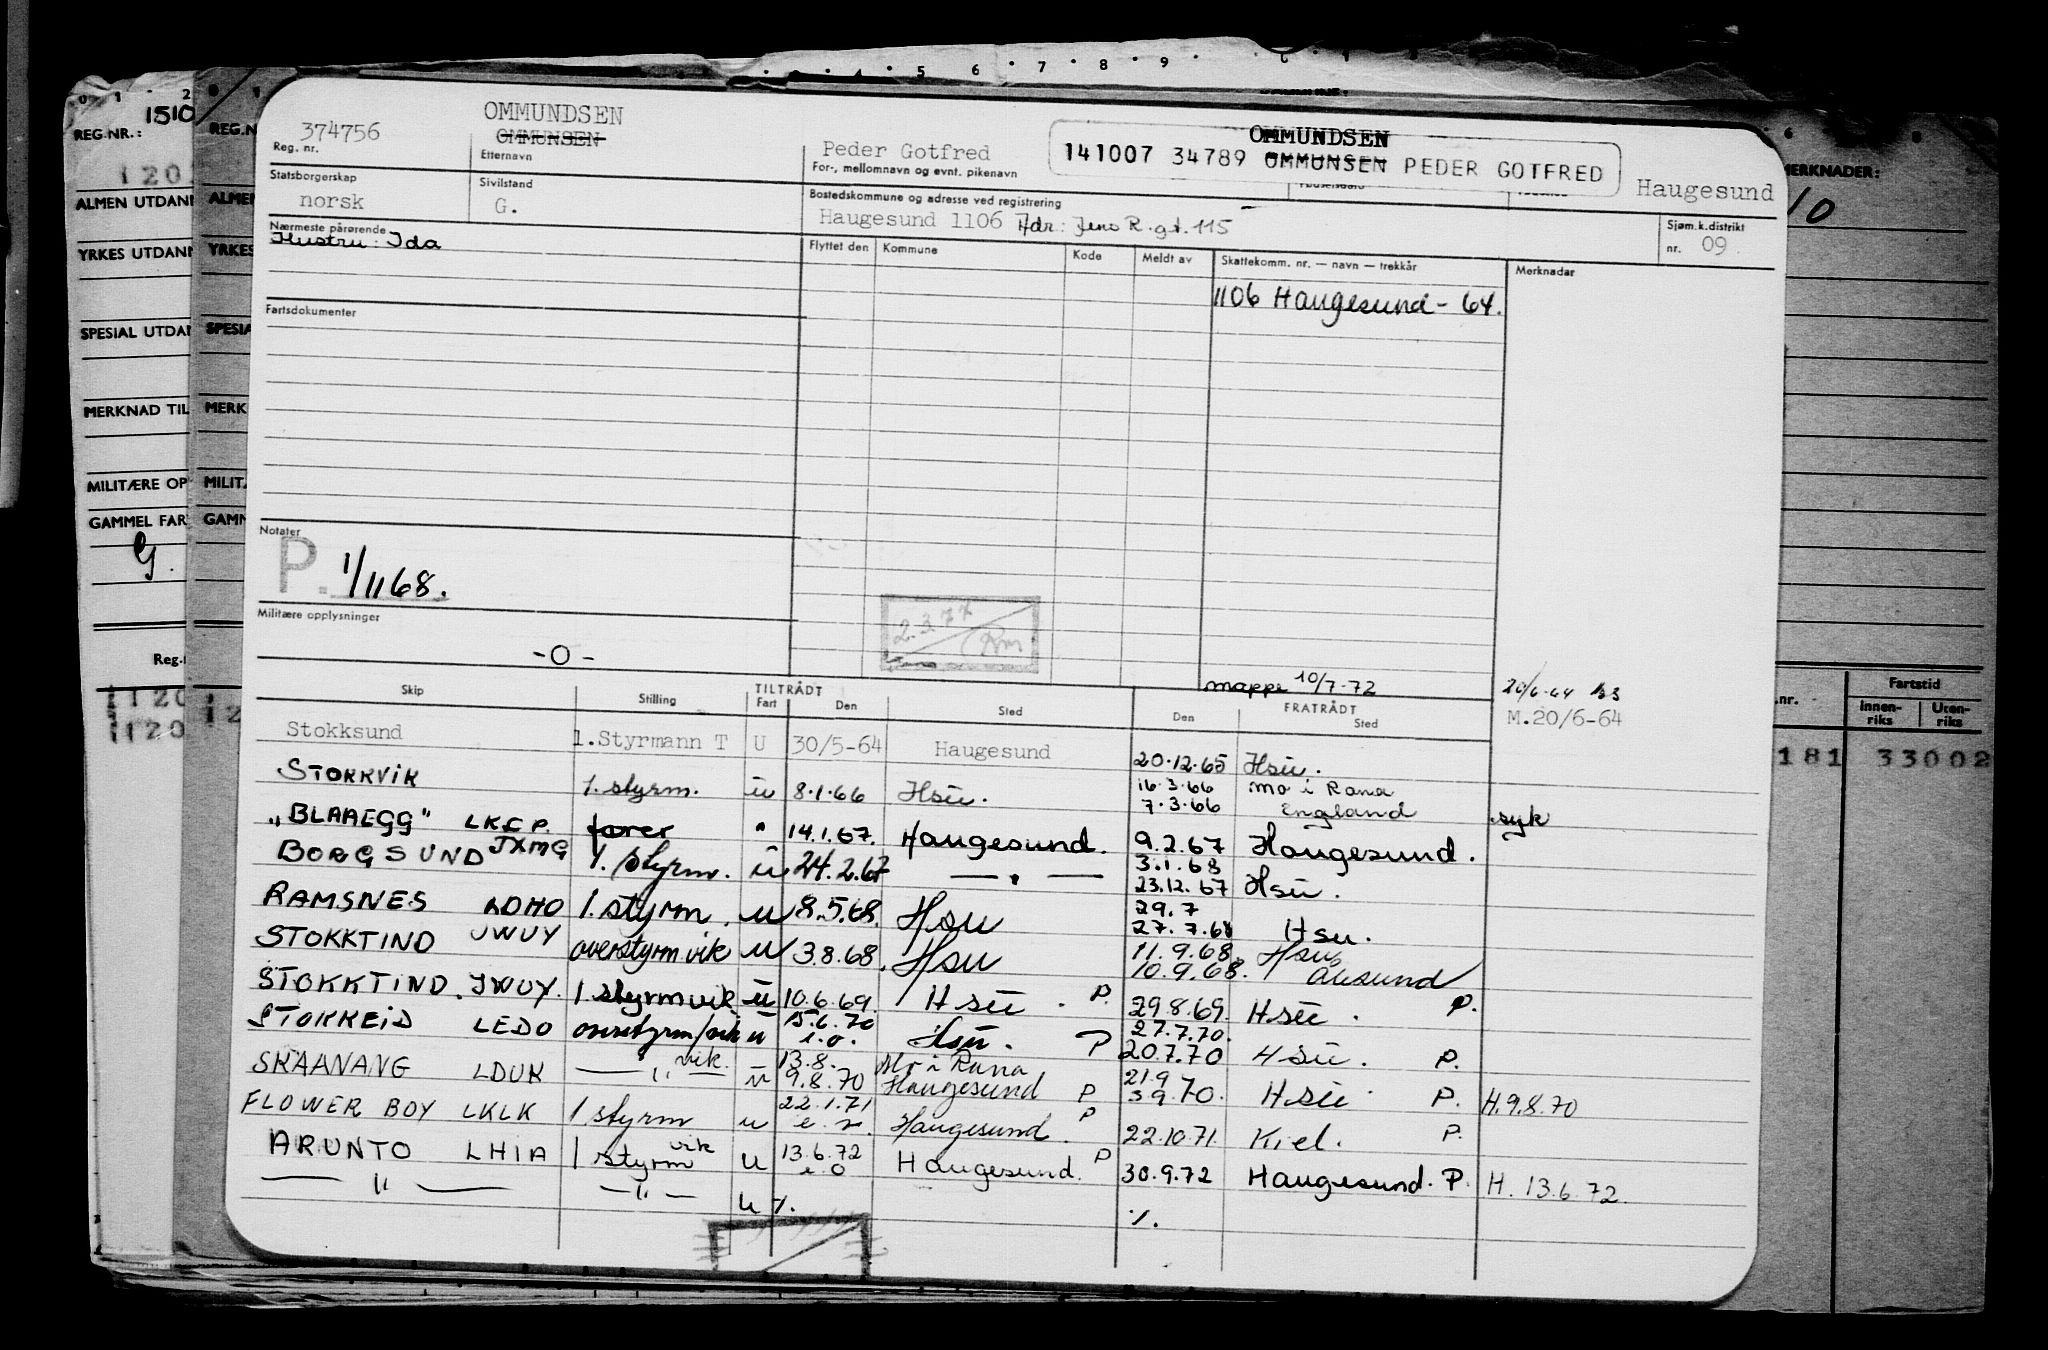 4 5 6 7 8 9
0 1 2
1510
REG.NR.:
REG.N
1202
ALMEN UTDANN
ALMEN
YRKES UTDANN
YRKES
SPESIAL UTDAN
SPESIA
MERKNAD TIL
MERK
MILITÆRE OP
MILITÆ
GAMMEL FAR
GAMM
G.
Reg.
1120
1120
12
MERKNADER:
10
Fartstid
.nr. Innenriks Utenriks
181 33002
374756 OMMUNDSEN
OMMUNSEN
Peder Gotfred
OMMUNDSEN
141007 34789 OMMUNSEN PEDER GOTFRED
Haugesund
Reg. nr. Etternavn For-, mellomnavn og evnt. pikenavn
Statsborgerskap Sivilstand Bostedskommune og adresse ved registrering
norsk G. Haugesund 1106 Adr: Jens R.gt. 115
Sjøm.k.distrikt
nr. 09
Nærmeste pårørende
Hustru: Ida
Flyttet den Kommune Kode Meldt av Skattekomm. nr. — navn — trekkår Merknader
1106 Haugesund - 64.
Fartsdokumenter
Notater
P. 1/1168.
2.3.77
Militære opplysninger
-0-
mappe 10/7-72
20/6-64
M.20/6-64
Skip Stilling TILTRÅDT Fart Den Sted FRATRÅDT Den Sted
Stokksund 1.Styrmann T U 30/5-64 Haugesund 20.12.65 Hsu.
STOKKVIK 1. styrm. u 8.1.66 Hsu. 16.3.66 Mo i Rana
7.3.66 England syk
"BLAAEGG" LKCP. fører " 14.1.67. Haugesund. 9.2.67 Haugesund.
BORGSUND JXMG 1. styrm. u 24.2.67 — " — 3.1.68
23.12.67 Hsu.
RAMSNES LDHO 1. styrm. u 8.5.68. Hsu 29.7
27.7.68 Hsu.
STOKKTIND JWUY overstyrm vik u 3.8.68. Hsu 11.9.68. Hsu
10.9.68. Ålesund
STOKKTIND. JWUY. 1 styrm vik u 10.6.69. Hsu. P. 29.8.69. Hsu. P.
STOKKEID LEDO overstyrm/vik u 15.6.70 e.o. Hsu. P 27.7.70.
20.7.70 Hsu. P.
SKAANANG LDUK — " — vik. u 13.8. Mo i Rana
9.8.70 Haugesund P 21.9
3 9 70. Hsu P. H.9.8.70
FLOWER BOY LKLK 1 styrm u 22.1.71 Haugesund. P 22.10.71. Kiel. P.
ARUNTO LHIA 1 styrm vik u 13.6.72 e.o Haugesund. P 30.9.72 Haugesund. P. H. 13.6.72.
— " — — " — u %. %.